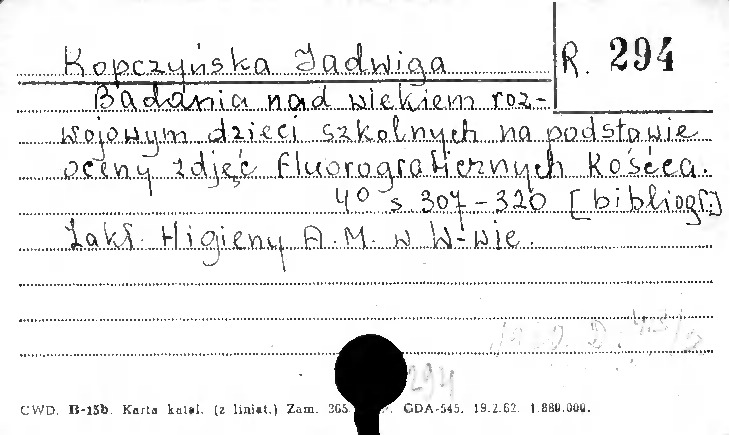 Kopczyńska Jadwiga
R. 294
Badania nad wiekiem roz-
wojowym dzieci szkolnych na podstawie
oceny zdjęć fluorograficznych kośćca.
4° s. 307-320 [bibliogr.]
Zakł. Higieny A.M. w W-wie.
294
CWD. B-15b. Karta katal. (z liniat.) Zam. GDA-545. 19.2.62. 1.880.000.